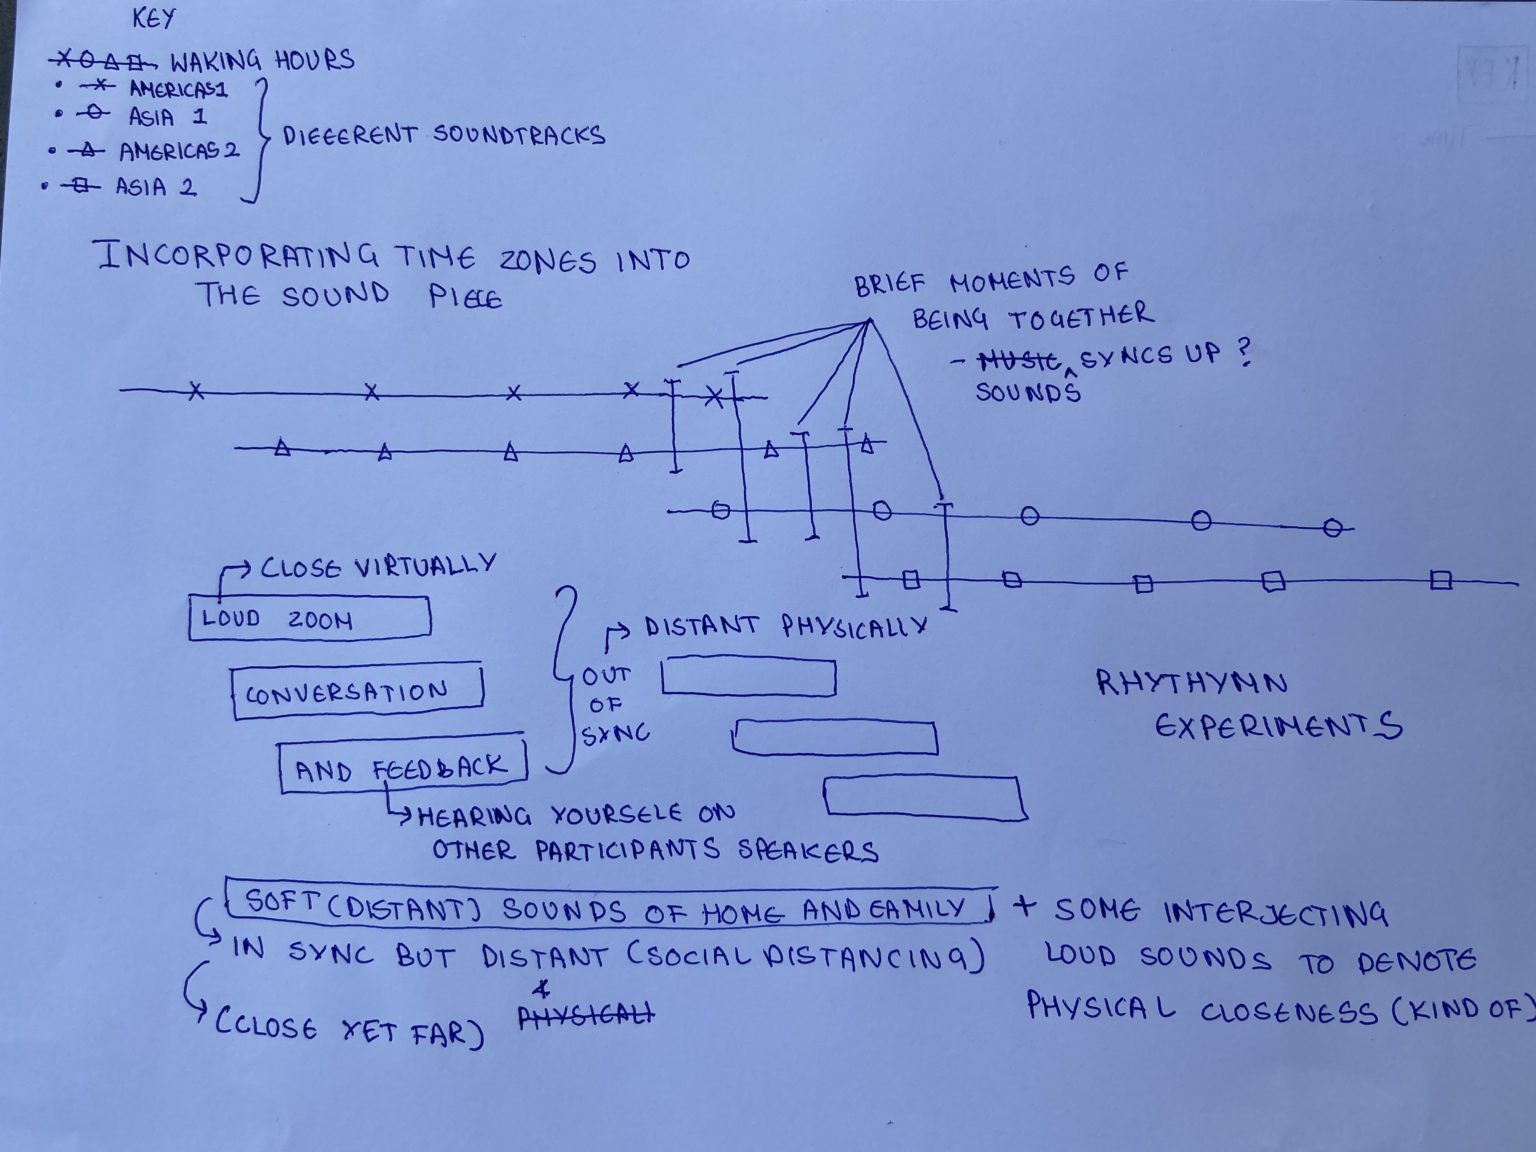 KEY
WAKING HOURS
AMERICAS1
ASIA 1
DIFFERENT SOUNDTRACKS
AMERICAS2
ASIA 2
INCORPORATING TIME ZONES INTO
THE SOUND PIECE
BRIEF MOMENTS OF
BEING TOGETHER
- MUSIC SYNCS UP ?
SOUNDS
CLOSE VIRTUALLY
LOUD ZOOM
CONVERSATION
AND FEEDBACK
OUT
OF
SYNC
DISTANT PHYSICALLY
RHYTHYMN
EXPERIMENTS
HEARING YOURSELF ON
OTHER PARTICIPANTS SPEAKERS
SOFT (DISTANT) SOUNDS OF HOME AND FAMILY + SOME INTERJECTING
LOUD SOUNDS TO DENOTE
PHYSICAL CLOSENESS (KIND OF)
IN SYNC BUT DISTANT (SOCIAL DISTANCING)
&
PHYSICALI
(CLOSE YET FAR)